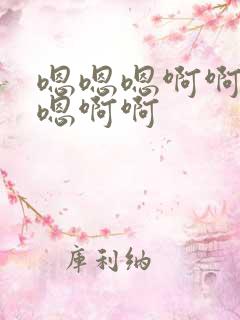 嗯嗯嗯啊啊
嗯啊啊
库利纳